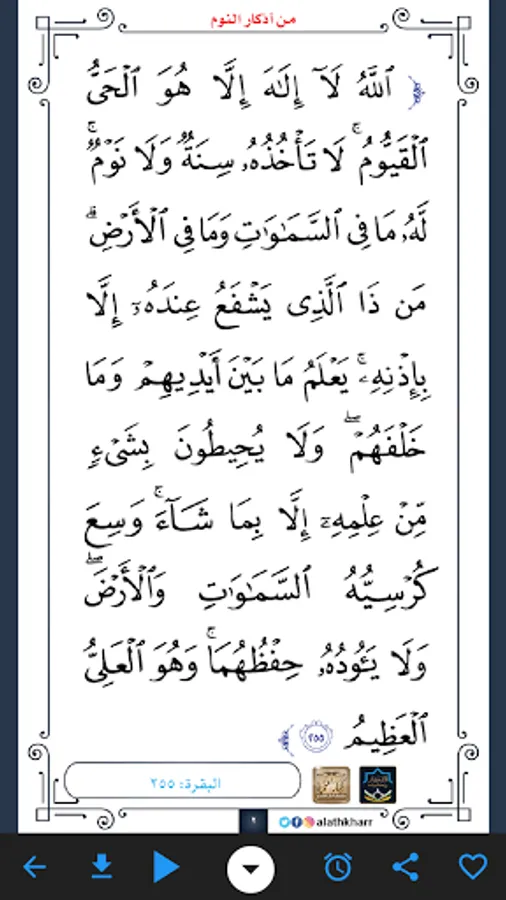 من أذكار النوم
﴿ ٱللَّهُ لَآ إِلَٰهَ إِلَّا هُوَ ٱلْحَىُّ
ٱلْقَيُّومُ ۚ لَا تَأْخُذُهُۥ سِنَةٌ وَلَا نَوْمٌ ۚ
لَّهُۥ مَا فِى ٱلسَّمَٰوَٰتِ وَمَا فِى ٱلْأَرْضِ ۗ
مَن ذَا ٱلَّذِى يَشْفَعُ عِندَهُۥٓ إِلَّا
بِإِذْنِهِۦ ۚ يَعْلَمُ مَا بَيْنَ أَيْدِيهِمْ وَمَا
خَلْفَهُمْ ۖ وَلَا يُحِيطُونَ بِشَىْءٍ
مِّنْ عِلْمِهِۦٓ إِلَّا بِمَا شَآءَ ۚ وَسِعَ
كُرْسِيُّهُ ٱلسَّمَٰوَٰتِ وَٱلْأَرْضَ ۖ
وَلَا يَـُٔودُهُۥ حِفْظُهُمَا ۚ وَهُوَ ٱلْعَلِىُّ
ٱلْعَظِيمُ ٢٥٥ ﴾
البقرة: ٢٥٥
alathkharr